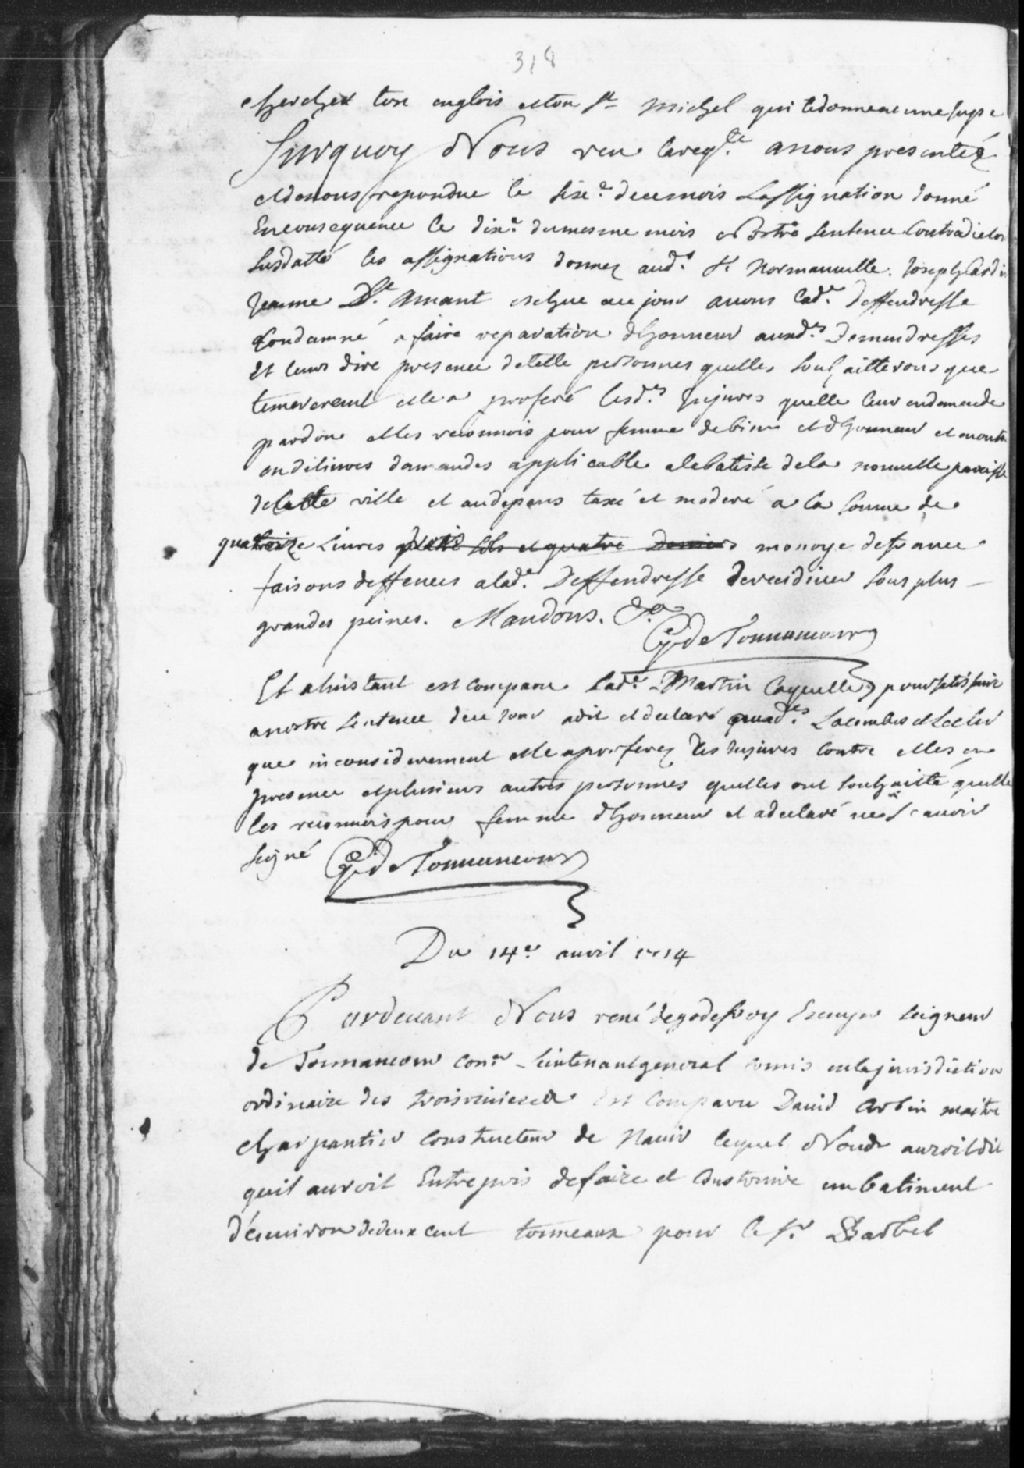 318
cherchez ton anglois et ton St Michel qui te donne une jupe
Surquoy Nous veu la reqte a nous presentée
et de nous repondue le sixe de ce mois Lassignation donné
En consequence le dixe du mesme mois Nostre sentence Contradictoire
susdatté les assignations donnez aud. Sr Normanville Joseph
Jeanne St Amant eschue ace jour avons lade deffendresse
Condamné a faire reparation dhonneur auxdes Demendresses
Et leurs dire presence de telle personnes quelles souhaitterons que
temerement elle a proferé lesdes Injures quelle leur en demende
pardon et les reconnois pour femme de bien et dhonneur et
en dix livres damandes applicable a la batisse de la nouvelle paroisse
de Cette ville et au depens taxé et moderé a la somme de
quatorze Livres monoye de france
faisons deffences a lade Deffendresse de recidiver sous plus
grandes peines. Mandons. &a
G de Tonnancour
Et a linstant est comparu Lade Martin pour satisfaire
a nostre sentence de ce Jour a dit et declaré auxdes Lacombes et
que inconsiderement elle a proferez des Injures contre elles en
presence et plusieurs autres personnes quelles ont souhaitté quelle
les reconnois pour femme dhonneur et a declaré ne scavoir
signé G de Tonnancour
Du 14e avril 1714
Pardevant Nous rené de godefroy Escuyer seigneur
de Tonnancour conr Lieutenant general commis en la jurisdiction
ordinaire des troisrivieres Est Comparu David Corbin maitre
charpantier Constructeur de Navir lequel Nous auroit dit
quil auroit Entrepris de faire et Construire un batiment
d'environ de deux cent tonneaux pour le Sr Barbel